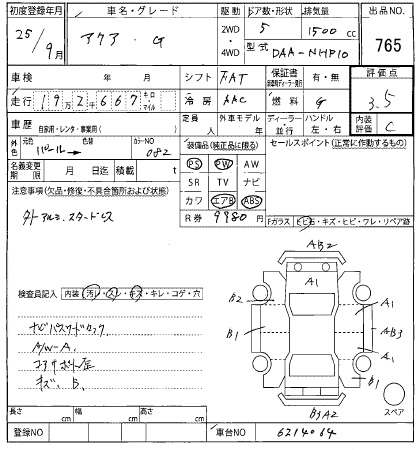 初度登録年月 車名・グレード 駆動 ドア数・形状 排気量 出品NO.
25/9月 アクア・G 2WD・4WD 5 1500cc 765
型式 DAA-NHP10
車検 年 月 シフト FAT 保証書 有・無 評価点
走行 19万2千667 キロ・マイル 冷房 AAC 燃料 G 3.5
車歴 自家用・レンタ・事業用( ) 定員 人 外車モデル 年 ディーラー・並行 ハンドル 左・右 内装評価 C
外色 元色 パール→ 色替 カラーNO 082
装備品(純正品に限る) セールスポイント(正常に作動するもの)
名義変更期限 月 日迄 積載 t
PS PW AW
SR TV ナビ
カワ エアB ABS
注意事項(欠品・修復・不具合箇所および状態)
外アルミ・スタッドレス
R券 9980円
Fガラス・ヒビB・キズ・ヒビ・ワレ・リペア跡
検査員記入 内装(汚レ・スレ・キズ・キレ・コゲ・穴
ナビパスワードロック
A/W-A.
コアサポート歪
キズ、B.
AB2
A1
B2
B1
AB3
A1
B1
B3A2
スペア
長さ cm 幅 cm 高さ cm
登録NO 車台NO 6214064